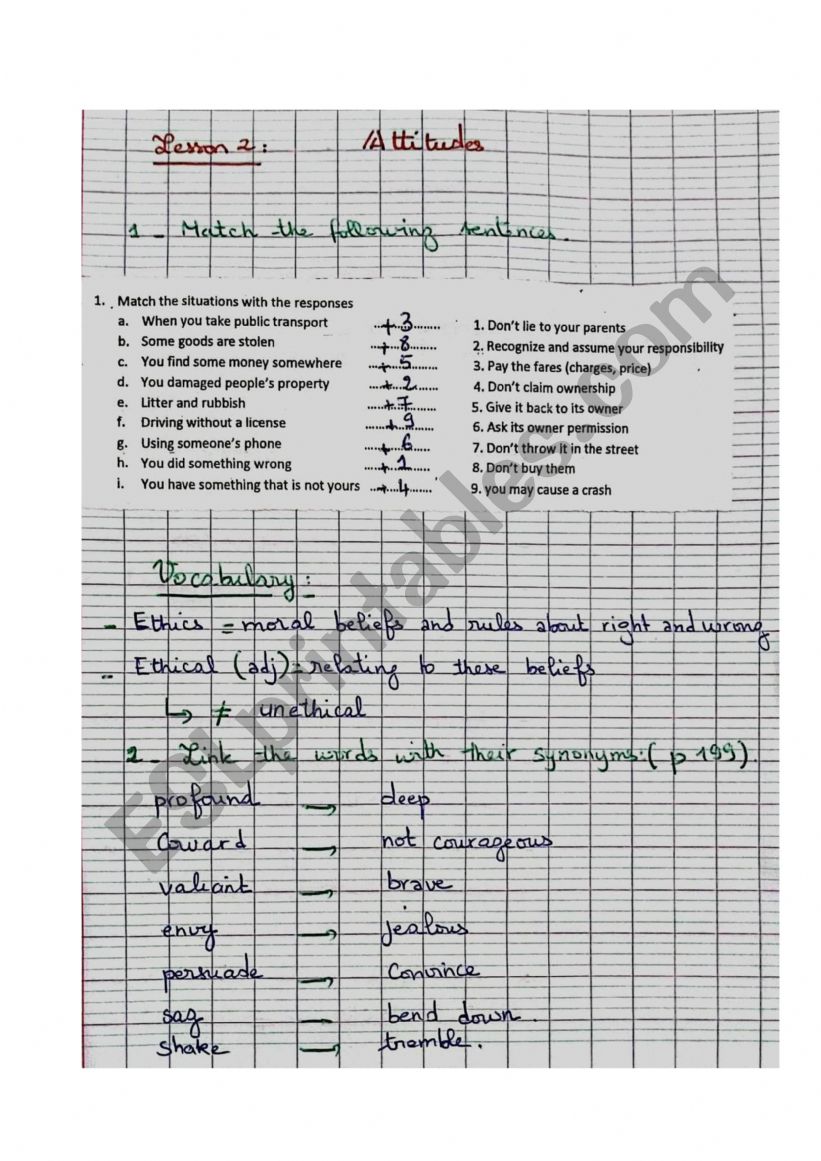 Lesson 2: Attitudes
1 - Match the following sentences.
1. Match the situations with the responses
a. When you take public transport ...+.3........ 1. Don't lie to your parents
b. Some goods are stolen ...+...8........ 2. Recognize and assume your responsibility
c. You find some money somewhere ...+...5....... 3. Pay the fares (charges, price)
d. You damaged people's property ....+...2....... 4. Don't claim ownership
e. Litter and rubbish ......+7........ 5. Give it back to its owner
f. Driving without a license ......+..9....... 6. Ask its owner permission
g. Using someone's phone ....+...6..... 7. Don't throw it in the street
h. You did something wrong ....+..1...... 8. Don't buy them
i. You have something that is not yours ...+..4....... 9. you may cause a crash
Vocabulary:
- Ethics = moral beliefs and rules about right and wrong
- Ethical (adj) = relating to these beliefs
↳ ≠ unethical
2 - Link the words with their synonyms: (p 199).
profound → deep
Coward → not courageous
valiant → brave
envy → jealous
persuade → Convince
sag → bend down.
shake → tremble.
ESLprintables.com